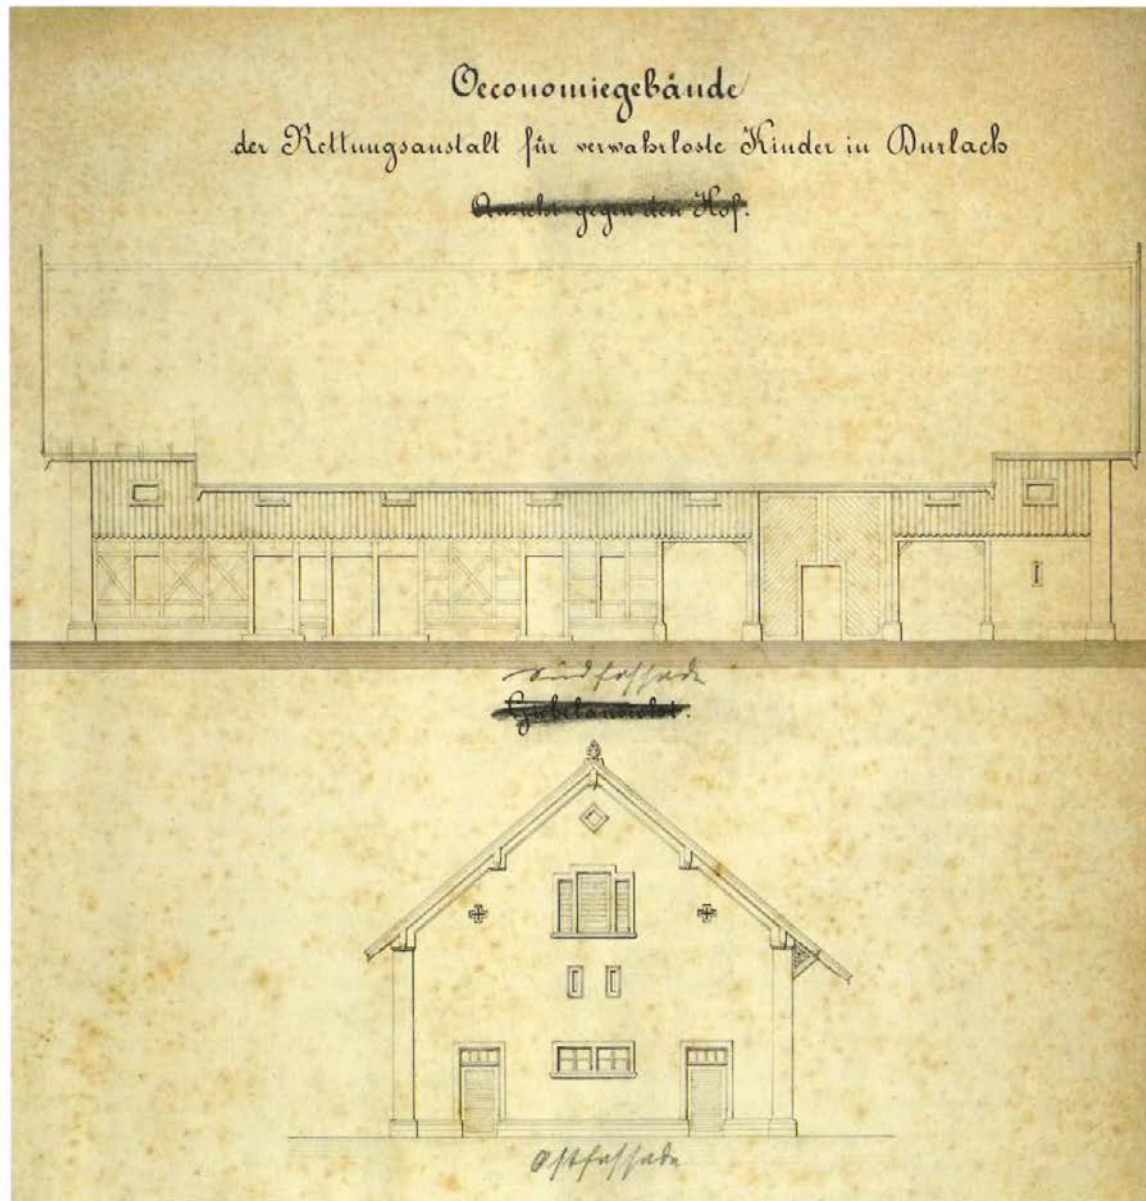 Oeconomiegebände
der Rettungsanstalt für verwahrloste Kinder in Durlach
Ansicht gegen den Hof.
Südfassade
Giebelansicht.
Ostfassade